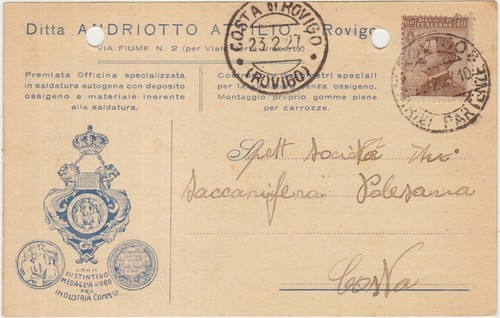 Ditta ANDRIOTTO ATTILIO - Rovigo
VIA FIUME N. 2 (per Viale Umberto)
Premiata Officina specializzata
in saldatura autogena con deposito
ossigeno e materiale inerente
alla saldatura.
Costr metri speciali
per la enza ossigeno.
Montaggio proprio gomme piene
per carrozze.
COSTA DI ROVIGO
23.2.27
(ROVIGO)
40
ROVIGO
10
ARRIVI PARTENZE
Spett Società
Saccarifera Polesana
Costa
GRAN
DISTINTIVO
MEDAGLIA D'ORO
PRO
INDUSTRIA COMM.